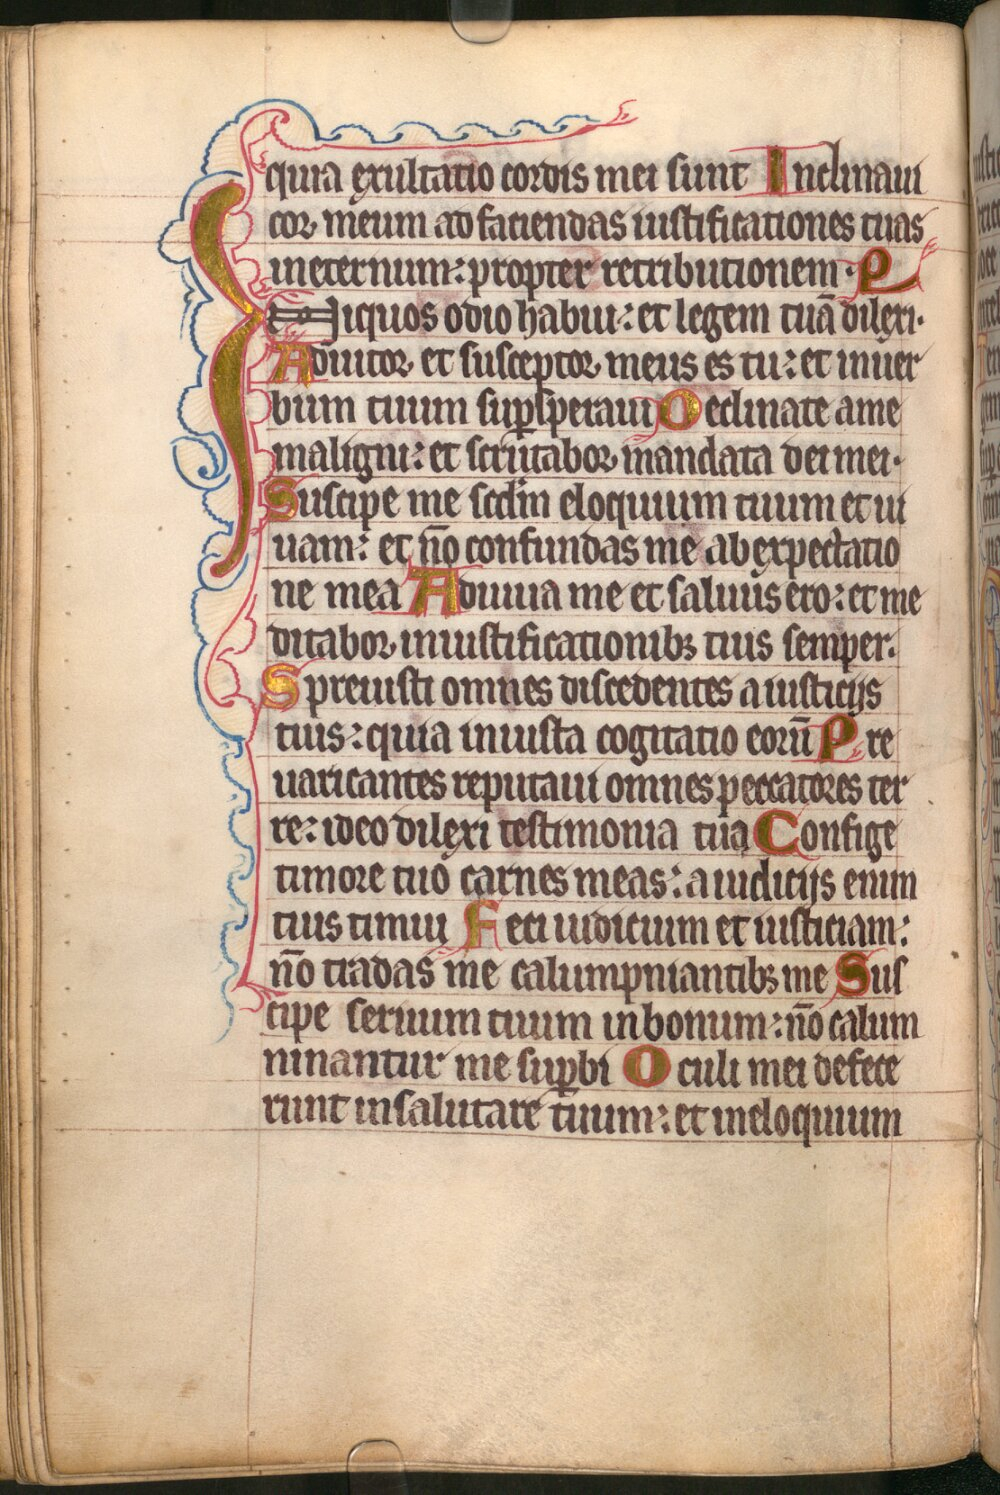 quia exultatio cordis mei sunt Inclinaui
cor meum ad faciendas iustificationes tuas
ineternum: propter retributionem· P
Iniquos odio habui: et legem tuā dilexi·
Adiutor et susceptor meus es tu: et inuer
bum tuum sup̱speraui Declinate ame
maligni: et scrutabor mandata dei mei·
Suscipe me scd̄m eloquium tuum et ui
uam: et n̄o confundas me ab expectatio
ne mea Adiuua me et saluus ero: et me
ditabor iniustificationibꝫ tuis semper·
Spreuisti omnes discedentes a iusticijs
tuis: quia iniusta cogitatio eorū Pre
uaricantes reputaui omnes peccatores ter
re: ideo dilexi testimonia tua Confige
timore tuo carnes meas: a iudicijs enim
tuis timui Feci iudicium et iusticiam:
n̄o tradas me calumpniantibꝫ me Sus
cipe seruum tuum inbonum: n̄o calum
ninantur me sup̱bi Oculi mei defece
runt insalutare tuum: et ineloquium